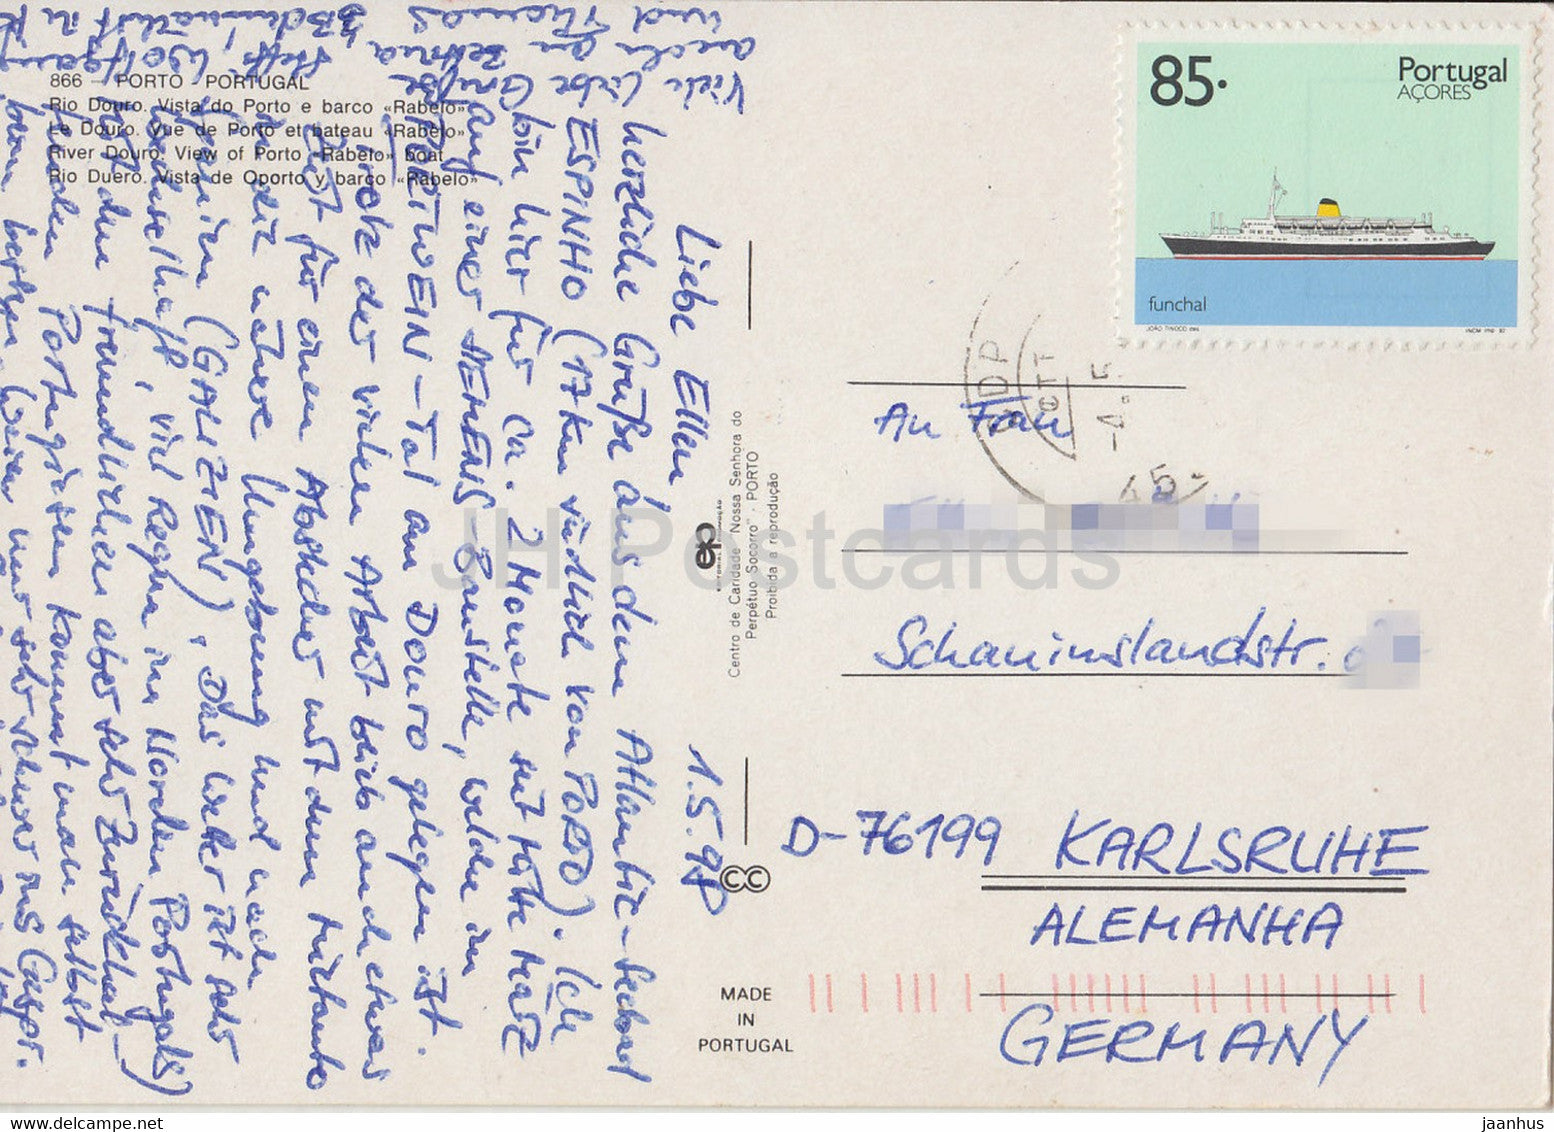 866 — PORTO - PORTUGAL
Rio Douro. Vista do Porto e barco «Rabelo»
Le Douro. Vue de Porto et bateau «Rabelo»
River Douro. View of Porto «Rabelo» boat
Rio Duero. Vista de Oporto y barco «Rabelo»
1.5.98
Liebe Ellen
herzliche Grüße aus dem Atlantik-Seebad
ESPINHO (17km südlich von PORTO). Ich
bin hier für ca. 2 Monate seit Mitte März
auf einer SIEMENS-Baustelle, welche im
PORTWEIN-Tal am Douro gelegen ist.
Trotz der vielen Arbeit blieb auch etwas
Zeit für einen Abstecher mit dem Mietauto
in die nähere Umgebung und nach
Spanien (GALIZIEN). Das Wetter ist sehr
wechselhaft, viel Regen im Norden Portugals)
Mit den freundlichen aber sehr zurückhal-
tenden Portugiesen kommt man selbst
wenn nur sehr schwer ins Gespr.
Viele liebe Grüße
auch an
und Thomas
Wolfgang
Centro de Caridade "Nossa Senhora do
Perpétuo Socorro" - PORTO
Proibida a reprodução
ep
EDITORIAL PROMOÇÃO
CC
MADE
IN
PORTUGAL
85.
Portugal
AÇORES
funchal
JOÃO TINOCO
INCM
CTT
An Frau
Schauinslandstr.
D-76199 KARLSRUHE
ALEMANHA
GERMANY
JH Postcards
jaanhus